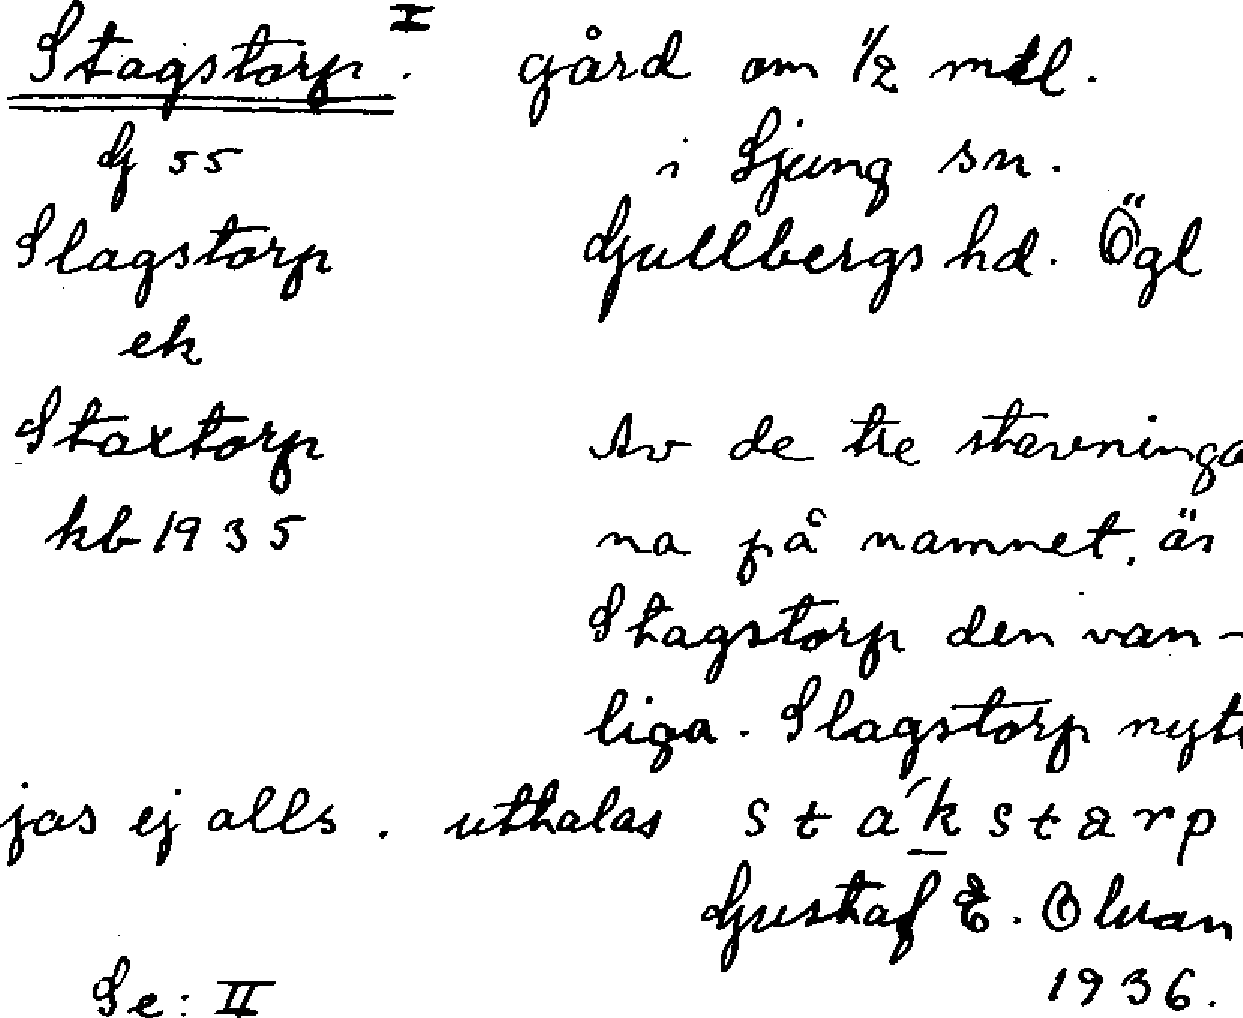 Stagstorp. I gård om 1/2 mtl.
G 55 i Ljung sn.
Slagstorp Gullbergs hd. Ögl
ek
Staxtorp Av de tre stavninga
kb 1935 na på namnet, är
Stagstorp den van-
liga. Slagstorp nytt
jas ej alls. uttalas stákstarp
Gustaf E. Olvan
1936.
Se: II